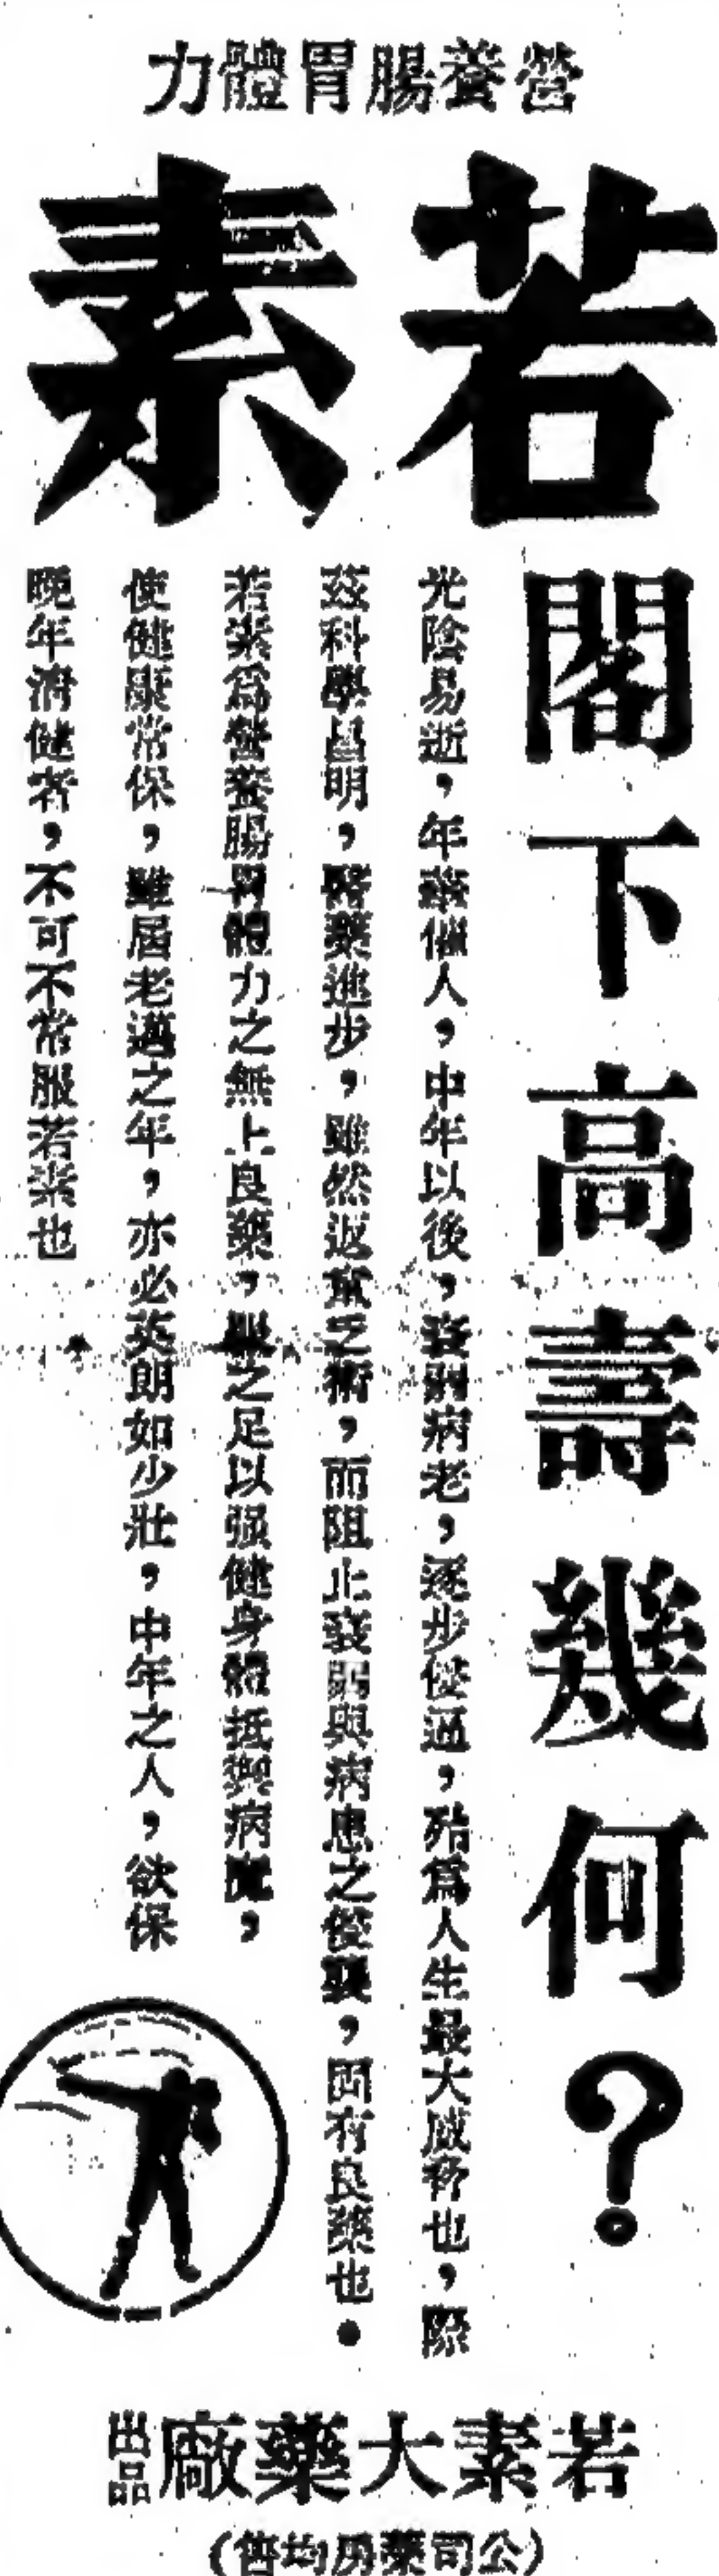 營養腸胃體力
若素
閣下高壽幾何？
光陰易逝，年華催人，中年以後，衰弱病老，逐步侵逼，殆為人生最大威脅也，際
茲科學昌明，醫藥進步，雖然返童乏術，而阻止衰弱與病患之侵襲，固有良藥也．
若素為營養腸胃體力之無上良藥，服之足以强健身體抵禦病魔，
使健康常保，雖屆老邁之年，亦必英朗如少壯，中年之人，欲保
晚年清健者，不可不常服若素也
若素大藥廠出品
(公司藥房均售)